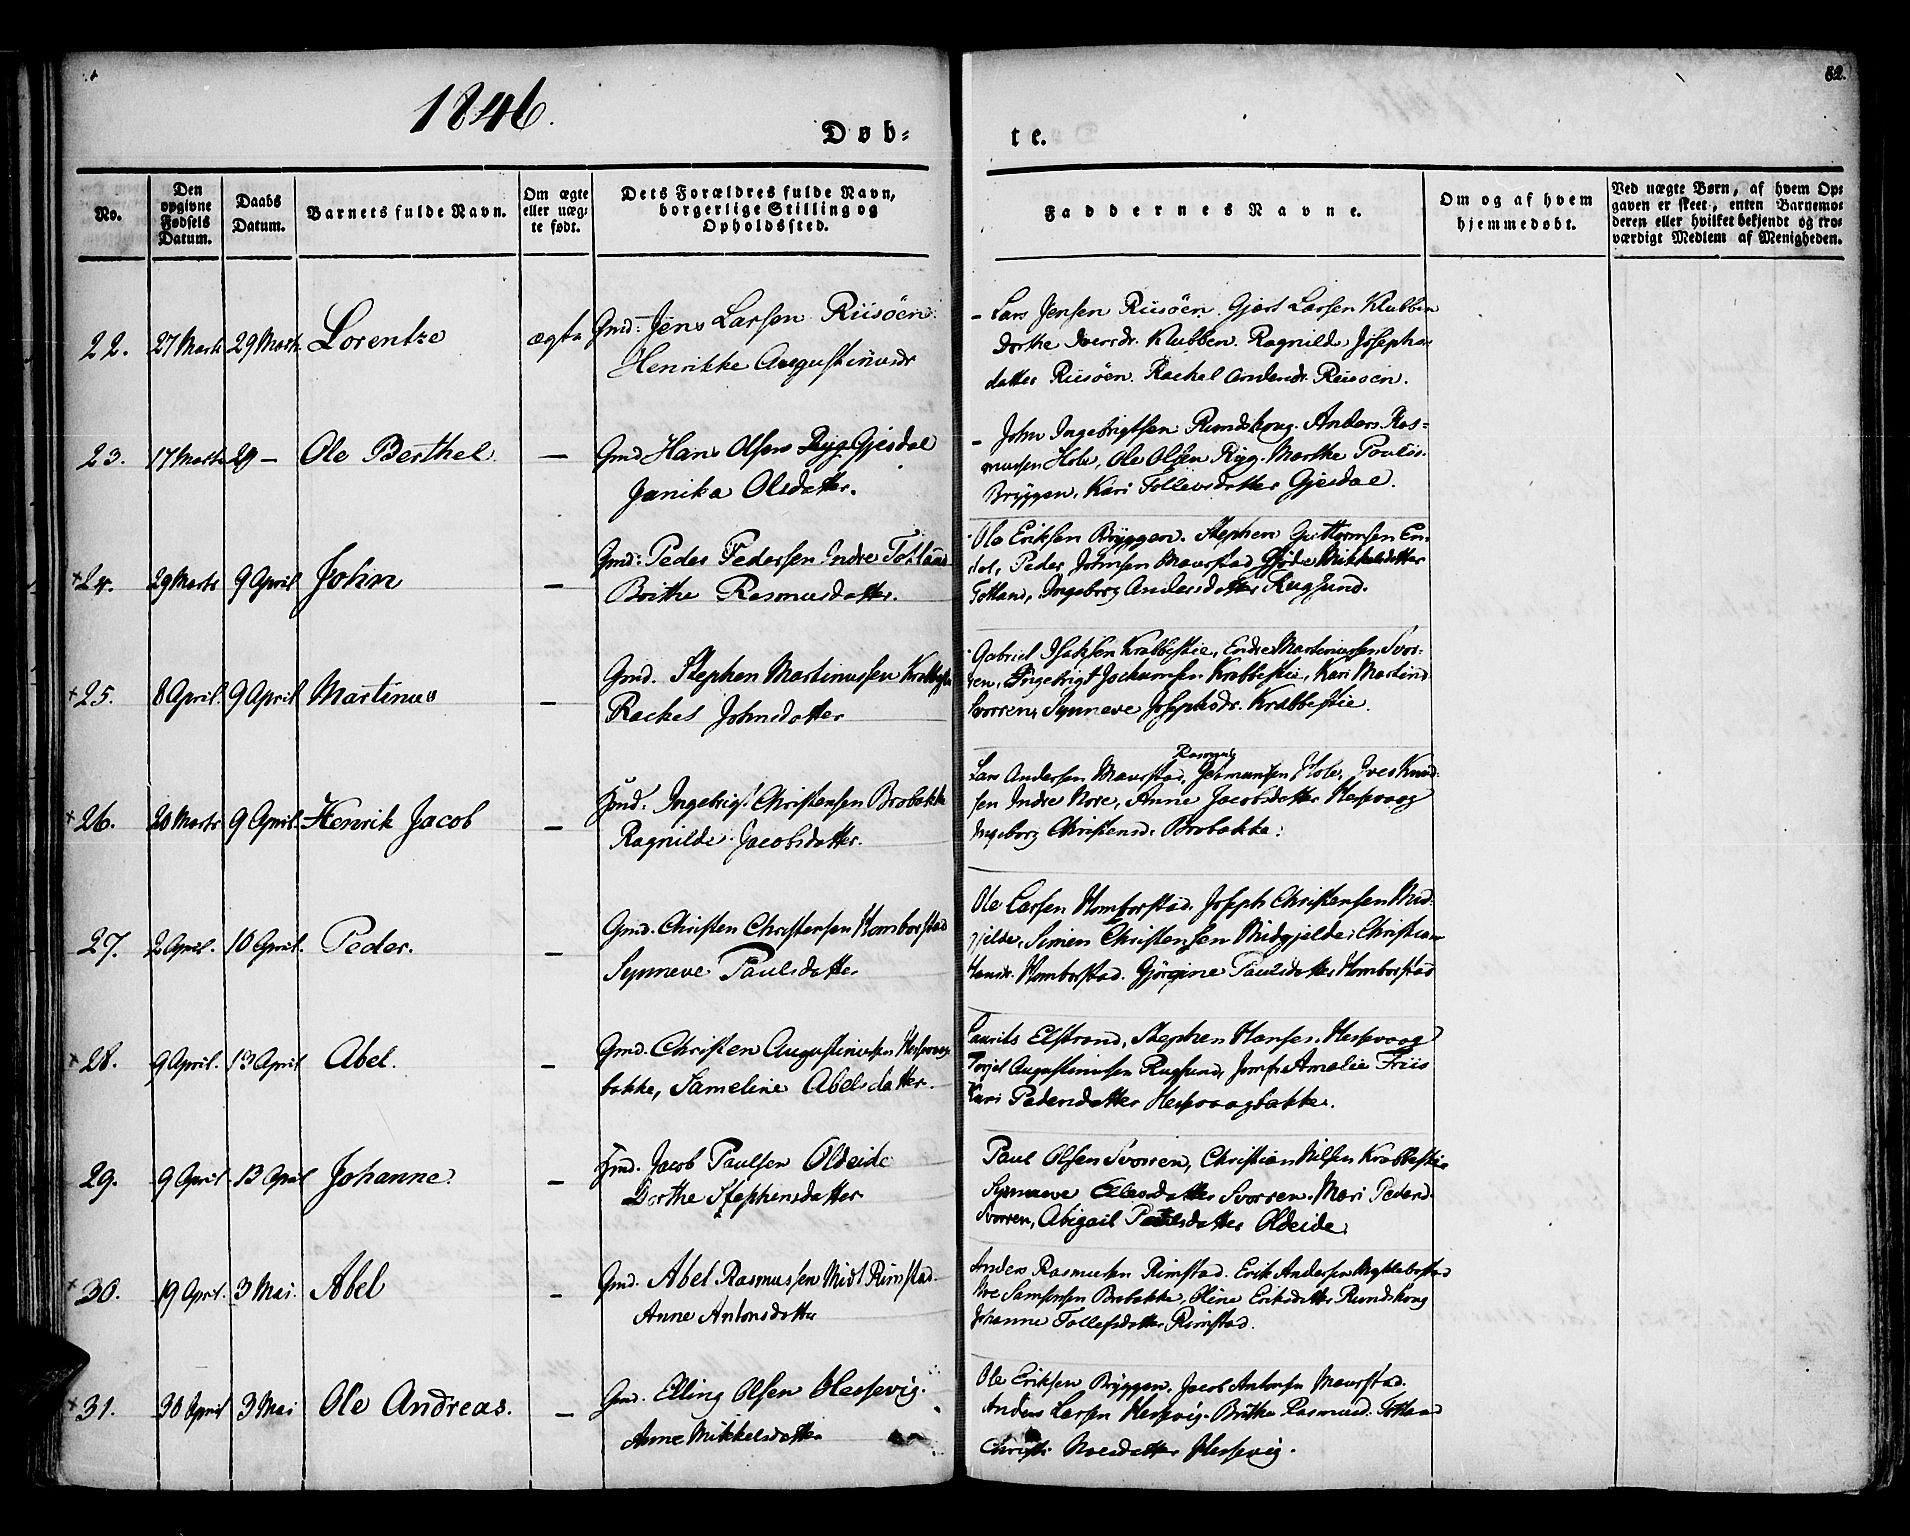 1846.
82.
Døb-
te.
No.
Den opgivne Fødsels Datum.
Daabs Datum.
Barnets fulde Navn.
Om ægte eller uægte født.
Dets Forældres fulde Navn, borgerlige Stilling og Opholdssted.
Faddernes Navne.
Om og af hvem hjemmedøbt.
Ved uægte Børn, af hvem Opgaven er skeet, enten Barnemoderen eller hvilket bekjendt og troværdigt Medlem af Menigheden.
22. 27 Marts 29 Marts. Lorentze ægte Gmd: Jens Larsen Riisöen.
Henrikke Augustinusdr
Lars Jensen Riisöen. Gjert Larsen Klubben
Dorthe Iversdr. Klubben. Ragnilde Josephs-
datter Riisöen. Rachel Andersdr. Riisöen.
23. 17 Marts 29 — Ole Berthel. — Gmd Hans Olsen Ryg Gjesdal
Janika Olsdatter.
John Ingebrigtsen Rundskoug. Anders Ras-
mussen Hole, Ole Olsen Ryg. Marthe Poulsd.
Bryggen, Kari Tollevsdatter Gjesdal.
+24. 29 Marts 9 April John — Gmd: Peder Pedersen Indre Totland
Brithe Rasmusdatter.
Ole Eriksen Bryggen. Stephen Guttormsen En-
dal, Peder Johnsen Maurstad, Mikkelsdatter
Totland, Ingeborg Andersdatter Rugsund.
+25. 8 April. 9 April Martinus — Gmd. Stephen Martinussen Krabbestie
Rachel Johnsdatter
Gabriel Isaksen Krabbestie, Endre Martinussen Svor-
ren, Ingebrigt Jochumsen Krabbestie, Kari Martind.
Svorren, Synneve Josephsdr. Krabbestie.
+26. 20 Marts 9 April. Henrik Jacob — Hmd. Ingebrigt Christensen Brobakke
Ragnilde Jacobsdatter.
Rasmus
Lars Andersen Maurstad, Hole, Iver Knud-
sen Indre Nore, Anne Jacobsdatter Hessevaag
Ingeborg Christensd. Brobakke.
27. 2 April. 10 April. Peder. — Gmd. Christen Christensen Homborstad
Synneve Paulsdatter
Ole Larsen Homborstad. Joseph Christensen Mid-
gjelde, Simen Christensen Midgjelde, Christian
Hansdr. Homborstad. Gjörgine Paulsdatter Homborstad
+28. 9 April. 13 April Abel. — Gmd. Christen Augustinusen Hessevaag-
bakke, Sameline Abelsdatter.
Laurits Elstrand, Stephen Hansen Hessevaag
Torjel Augustinusen Rugsund, Jomf. Amalie Friis
Kari Pedersdatter Hessevaagbakke.
29. 9 April. 13 April Johanne — Hmd. Jacob Paulsen Oldeide
Dorthe Stephensdatter
Paul Olsen Svorren, Christian Nilsen Krabbestie
Synneve Ellensdatter Svorren. Mari Pedersd.
Svorren, Abigail Paulsdatter Oldeide.
+30. 19 April. 3 Mai. Abel — Gmd. Abel Rasmussen Midt Rimstad.
Anne Antonsdatter
Anders Rasmusen Rimstad. Erik Andersen Myklebostad
Ive Samsonsen Brobakke, Oline Eriksdatter Rundskoug
Johanne Tollefsdatter Rimstad.
+31. 30 April 3 Mai Ole Andreas. — Gmd. Elling Olsen Hessevig.
Anne Mikkelsdatter
Ole Eriksen Bryggen, Jacob Antonsen Maurstad.
Anders Larsen Hessevig. Brithe Rasmusd. Totland
Christi Nilsdatter Hessevig.